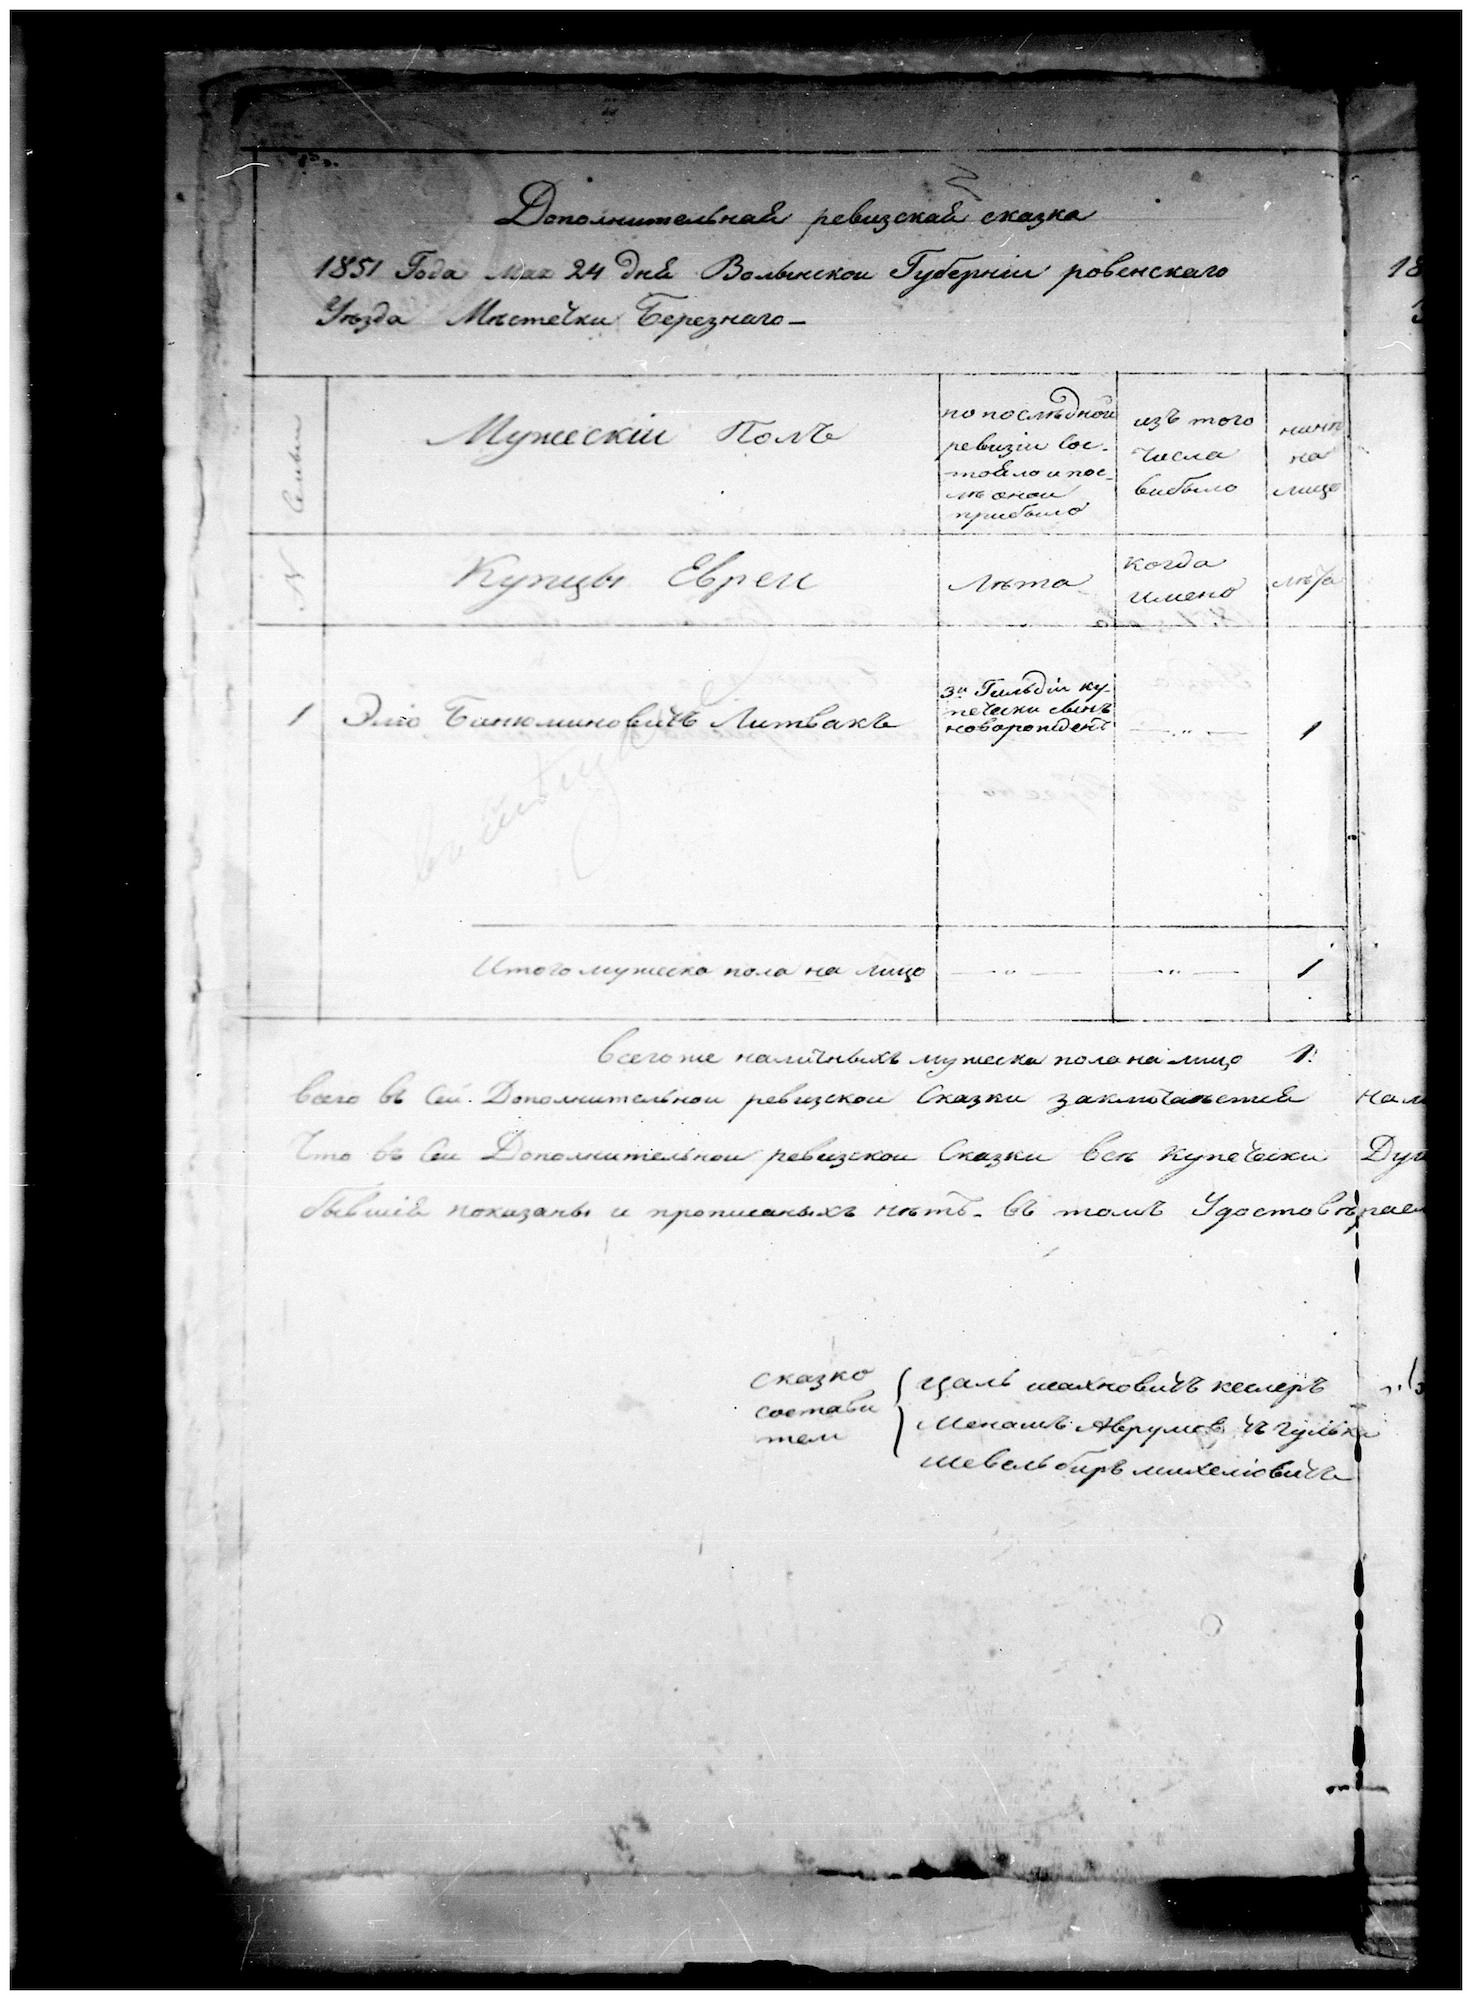 Дополнительная ревизская сказка
1851 Года Мая 24 дня Волынской Губерніи ровенскаго
Уѣзда Мѣстечки Березнаго
18
№ Семьи
Мужескій Полъ
по послѣдной
ревизіи сос-
тояло и пос-
лѣ оной
прибыло
изъ того
числа
выбыло
нинѣ
на
лицо
Купцы Евреи
Лѣта
когда
имено
лѣта
1 Эліо Бинюминовичъ Литвакъ
3й Гильдіи ку-
печески сынъ
новорожденъ
— „ — 1
Итого мужеска пола на лицо — „ — — „ — 1
всего же наличныхъ мужеска пола на лицо 1
всего въ Сей Дополнительной ревизской Сказки заключается
Что въ Сей Дополнительной ревизской Сказки всѣ купечески
бывшія показаны и прописаныхъ нѣтъ. въ томъ Удостовѣраем
сказко
состави
тели
Цаль шахновичъ кеслеръ
Менашъ Аврумов чъ гулька
шевель биръ михеліовичъ